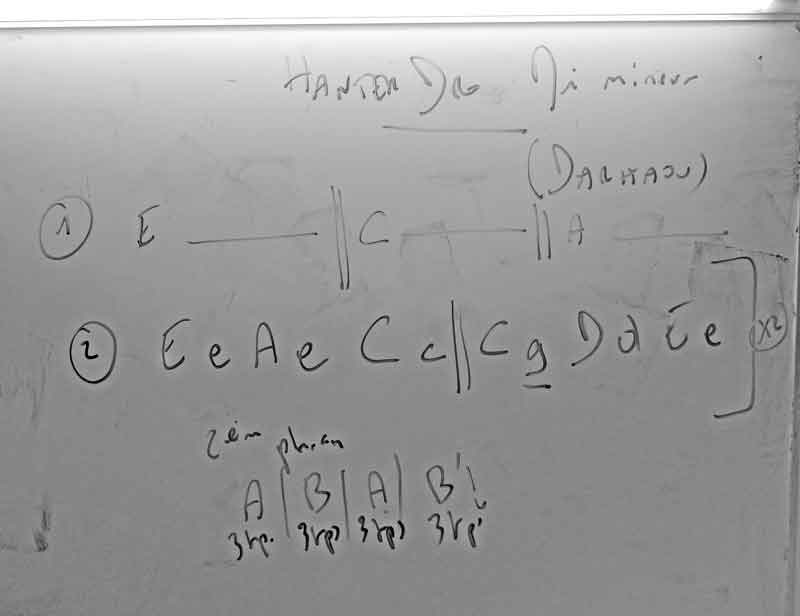 HANTER DRO Mi mineur
(DARHAOU)
① E ——— || C ——— || A ———
② E e A e C c || C g D d E e ] x2
2èm phrase
A | B | A | B'
3 tps | 3 tps | 3 tps | 3 tps